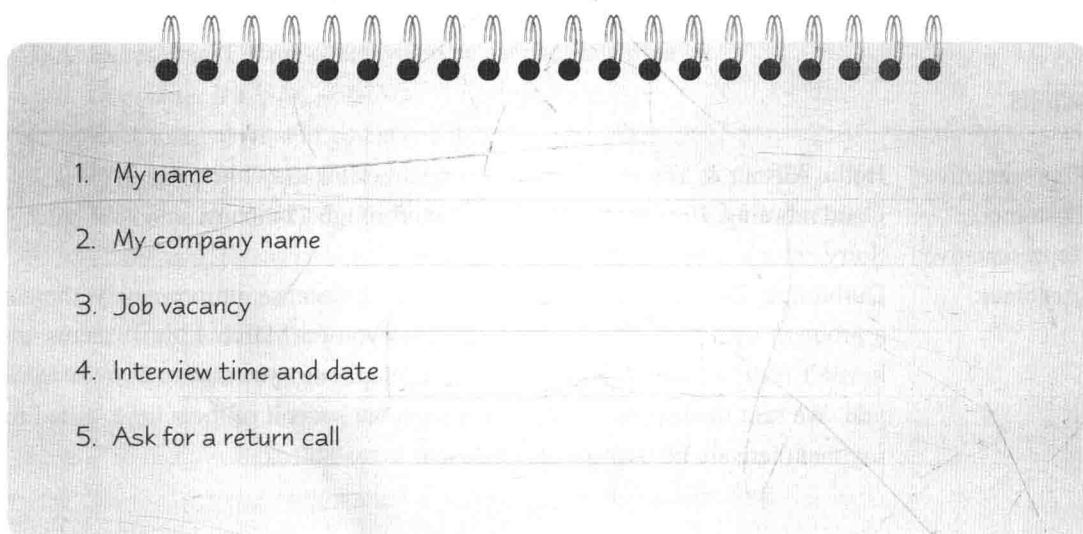 1. My name
2. My company name
3. Job vacancy
4. Interview time and date
5. Ask for a return call